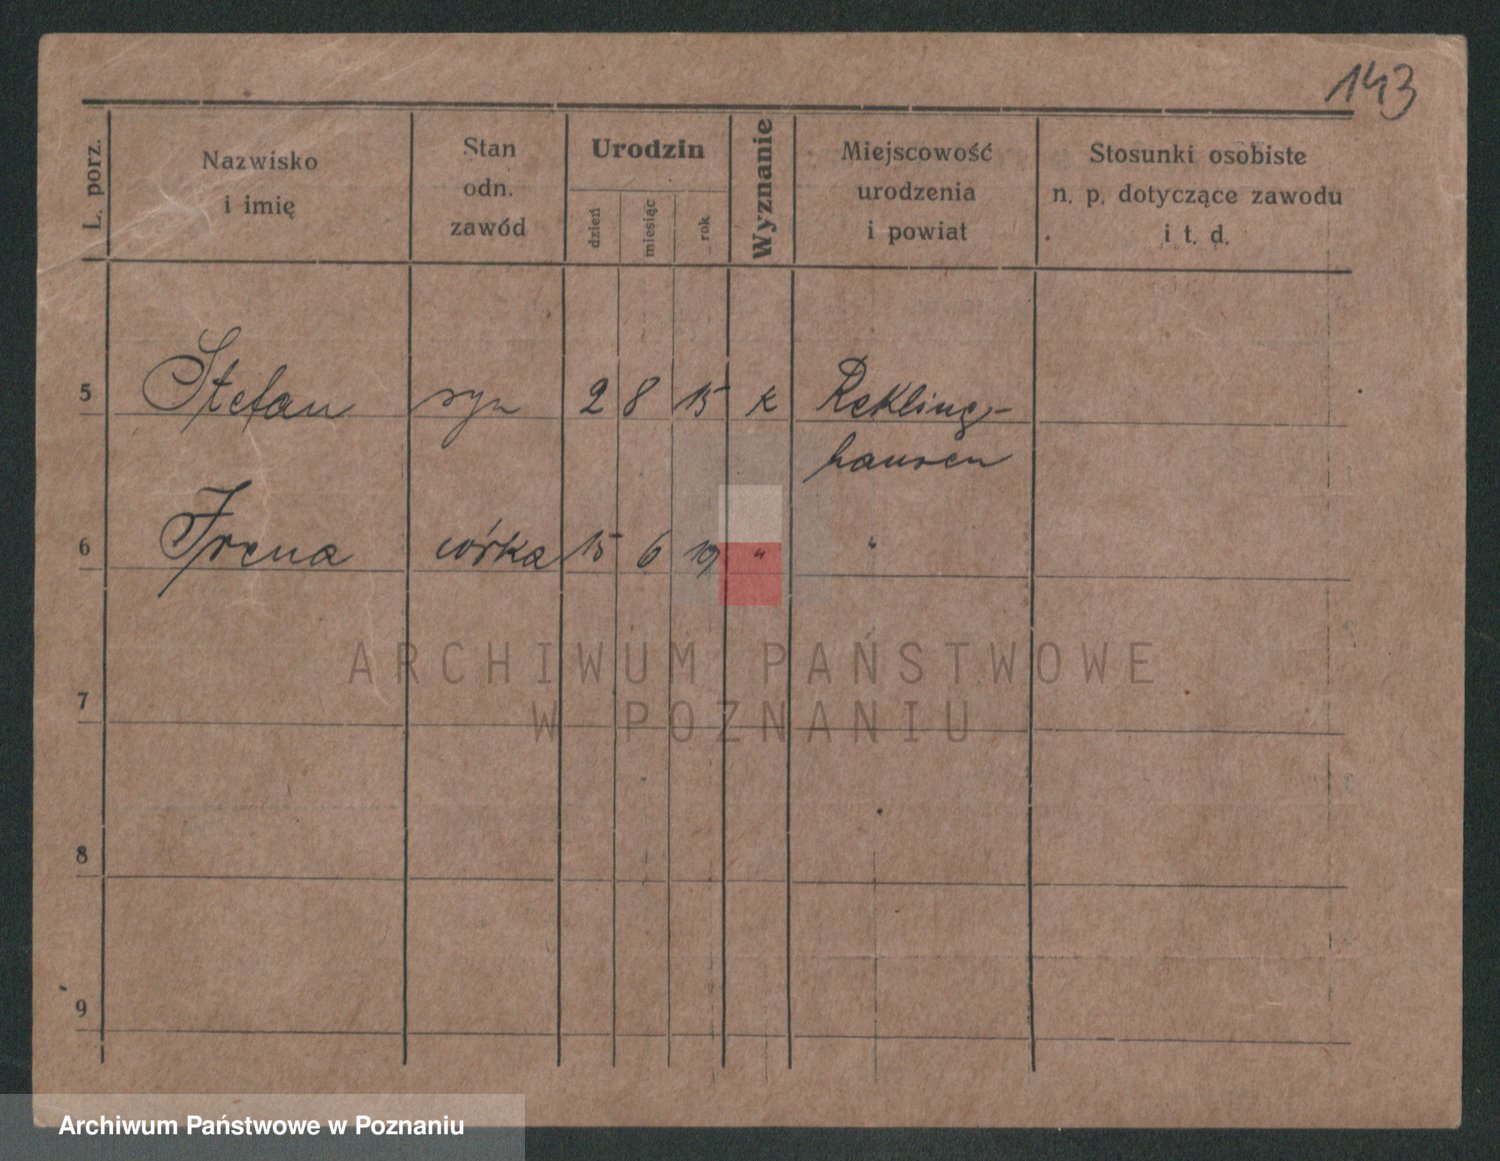 143
L. porz.
Nazwisko
i imię
Stan
odn.
zawód
Urodzin
dzień
miesiąc
rok
Wyznanie
Miejscowość
urodzenia
i powiat
Stosunki osobiste
n. p. dotyczące zawodu
i t. d.
5 Stefan syn 2 8 15 k Rekling-
hausen
6 Irena córka 15 6 19 " "
ARCHIWUM PAŃSTWOWE
W POZNANIU
7
8
9
Archiwum Państwowe w Poznaniu